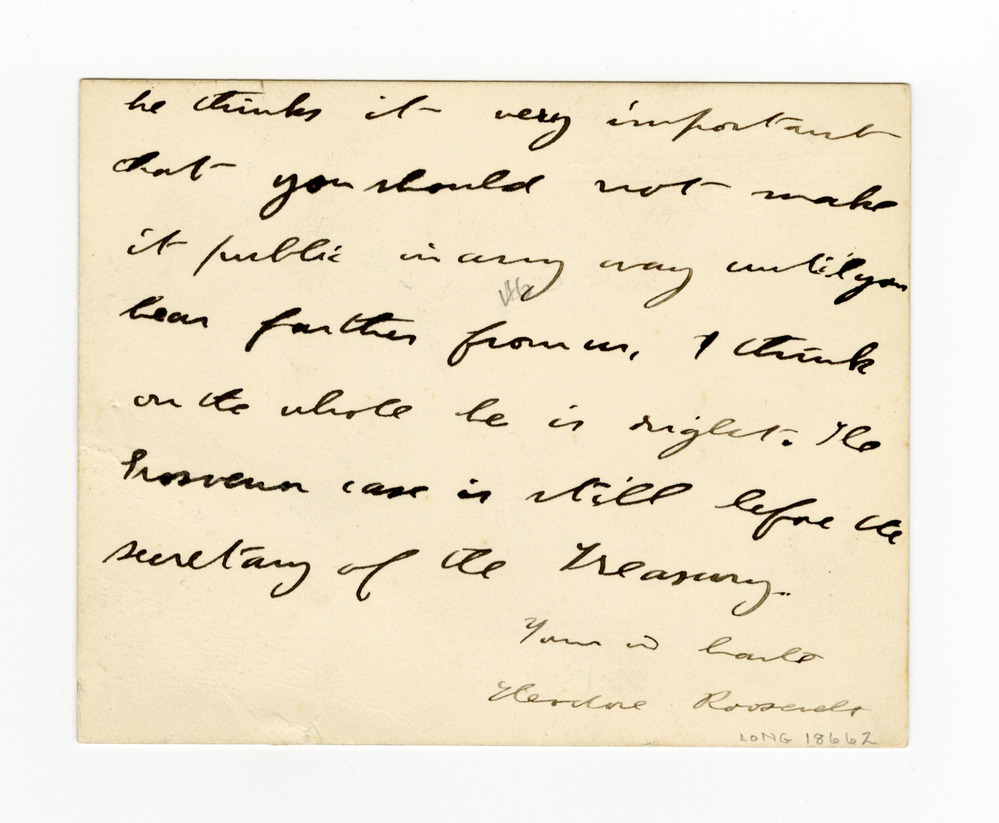 he thinks it very important
that you should not make
it public in any way until you
hear further from us, I think
on the whole he is right. The
Grosvenor case is still before the
secretary of the Treasury.
Yours in haste
Theodore Roosevelt
LONG 18662